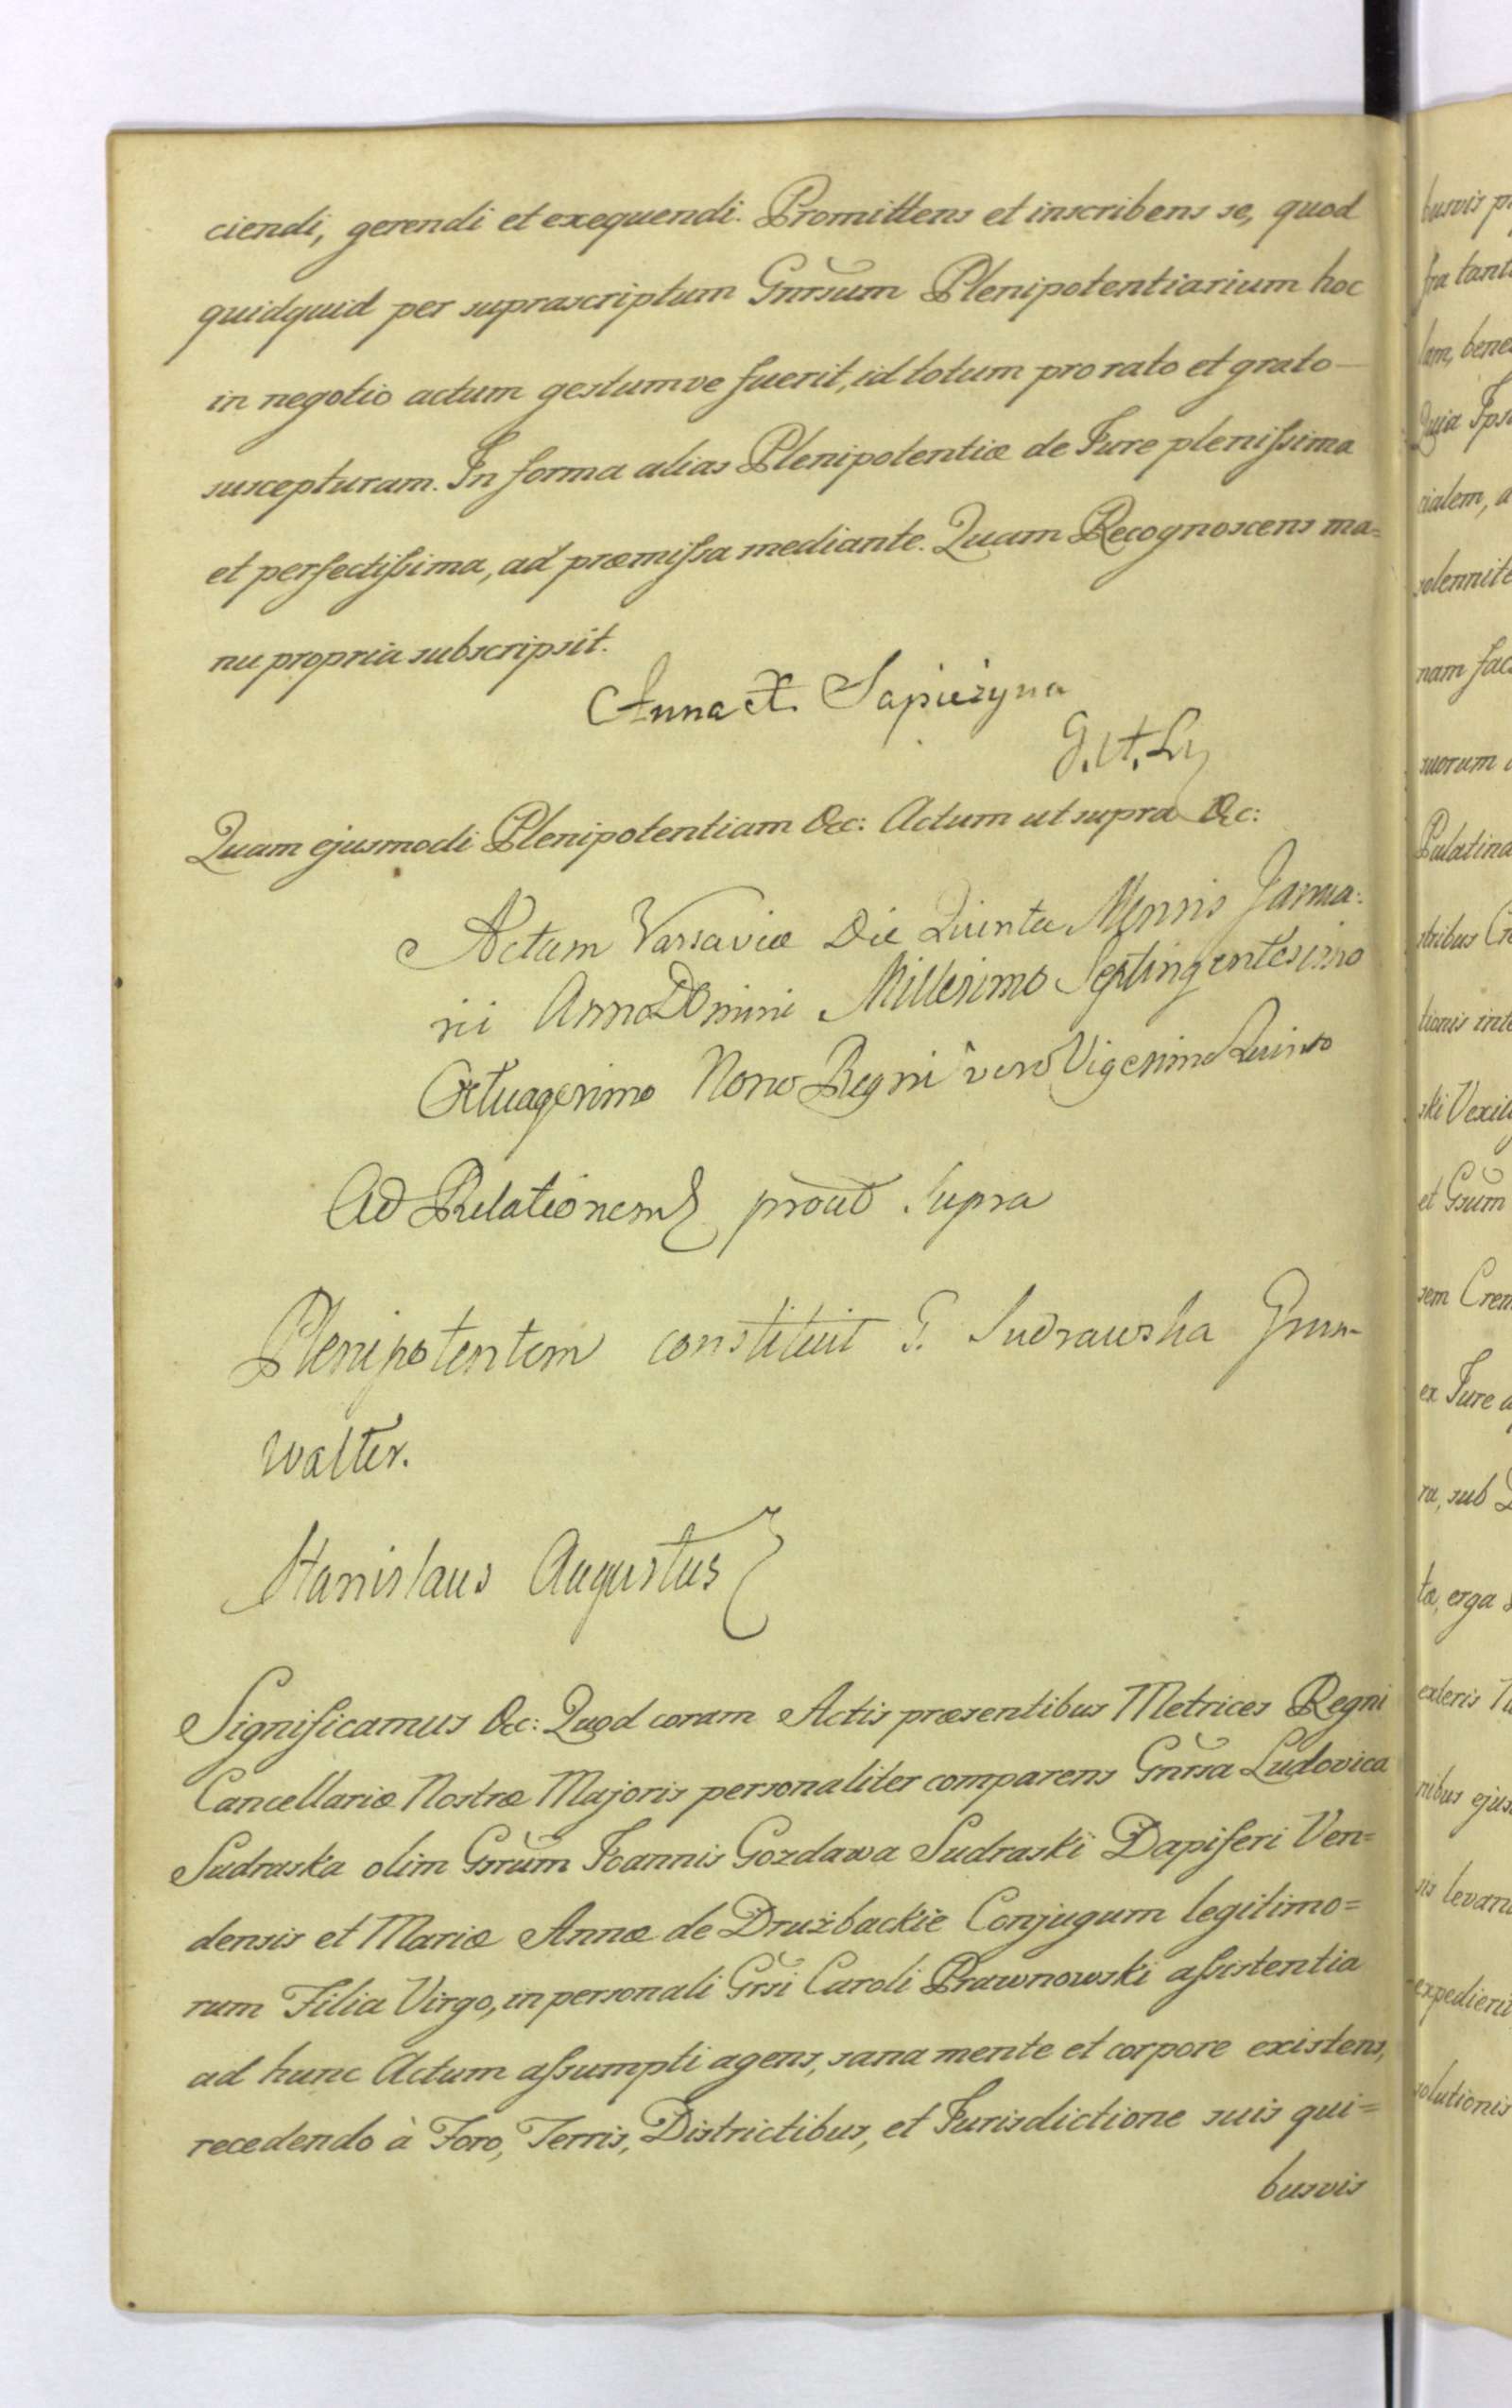 ciendi, gerendi et exequendi. Promittens et inscribens se, quod
quidquid per suprascriptum Gnrsum Plenipotentiarium hoc
in negotio actum gestumve fuerit, id totum pro rato et grato
suscepturam. In forma alias Plenipotentiæ de Jure plenissima
et perfectissima, ad præmissa mediante. Quam Recognoscens ma=
nu propria subscripsit.
Anna X. Sapieżyna
Quam ejusmodi Plenipotentiam &c: Actum ut supra &c:
Actum Varsaviæ Die Quinta Mensis Janua:
rii Anno Domini Millesimo Septingentesimo
Octuagesimo Nono Regni vero Vigesimo Quinto
Ad Relationem prout supra
Plenipotentem constituit G. Sudrawska Grun-
walter.
Stanislaus Augustus
Significamus &c: Quod coram Actis præsentibus Metrices Regni
Cancellariæ Nostræ Majoris personaliter comparens Gnrsa Ludovica
Sudraska olim Gnrum Joannis Gozdawa Sudraski Dapiferi Ven=
densis et Mariæ Annæ de Drużbackie Conjugum legitimo=
rum Filia Virgo, in personali Grsi Caroli Prawnowski assistentia
ad hunc Actum assumpti agens, sana mente et corpore existens,
recedendo à Foro, Terris, Districtibus, et Jurisdictione suis qui=
busvis
busvis
fra tant
lam, bene
Quia Ips
cialem, a
solennite
nam fac
suorum
Palatina
tionis inte
ski Vexil
et Gnrum
sem Crem
ex Jure a
ra, sub
tæ, erga
exteris
nibus ejus
sis levan
expedieri
solutionis